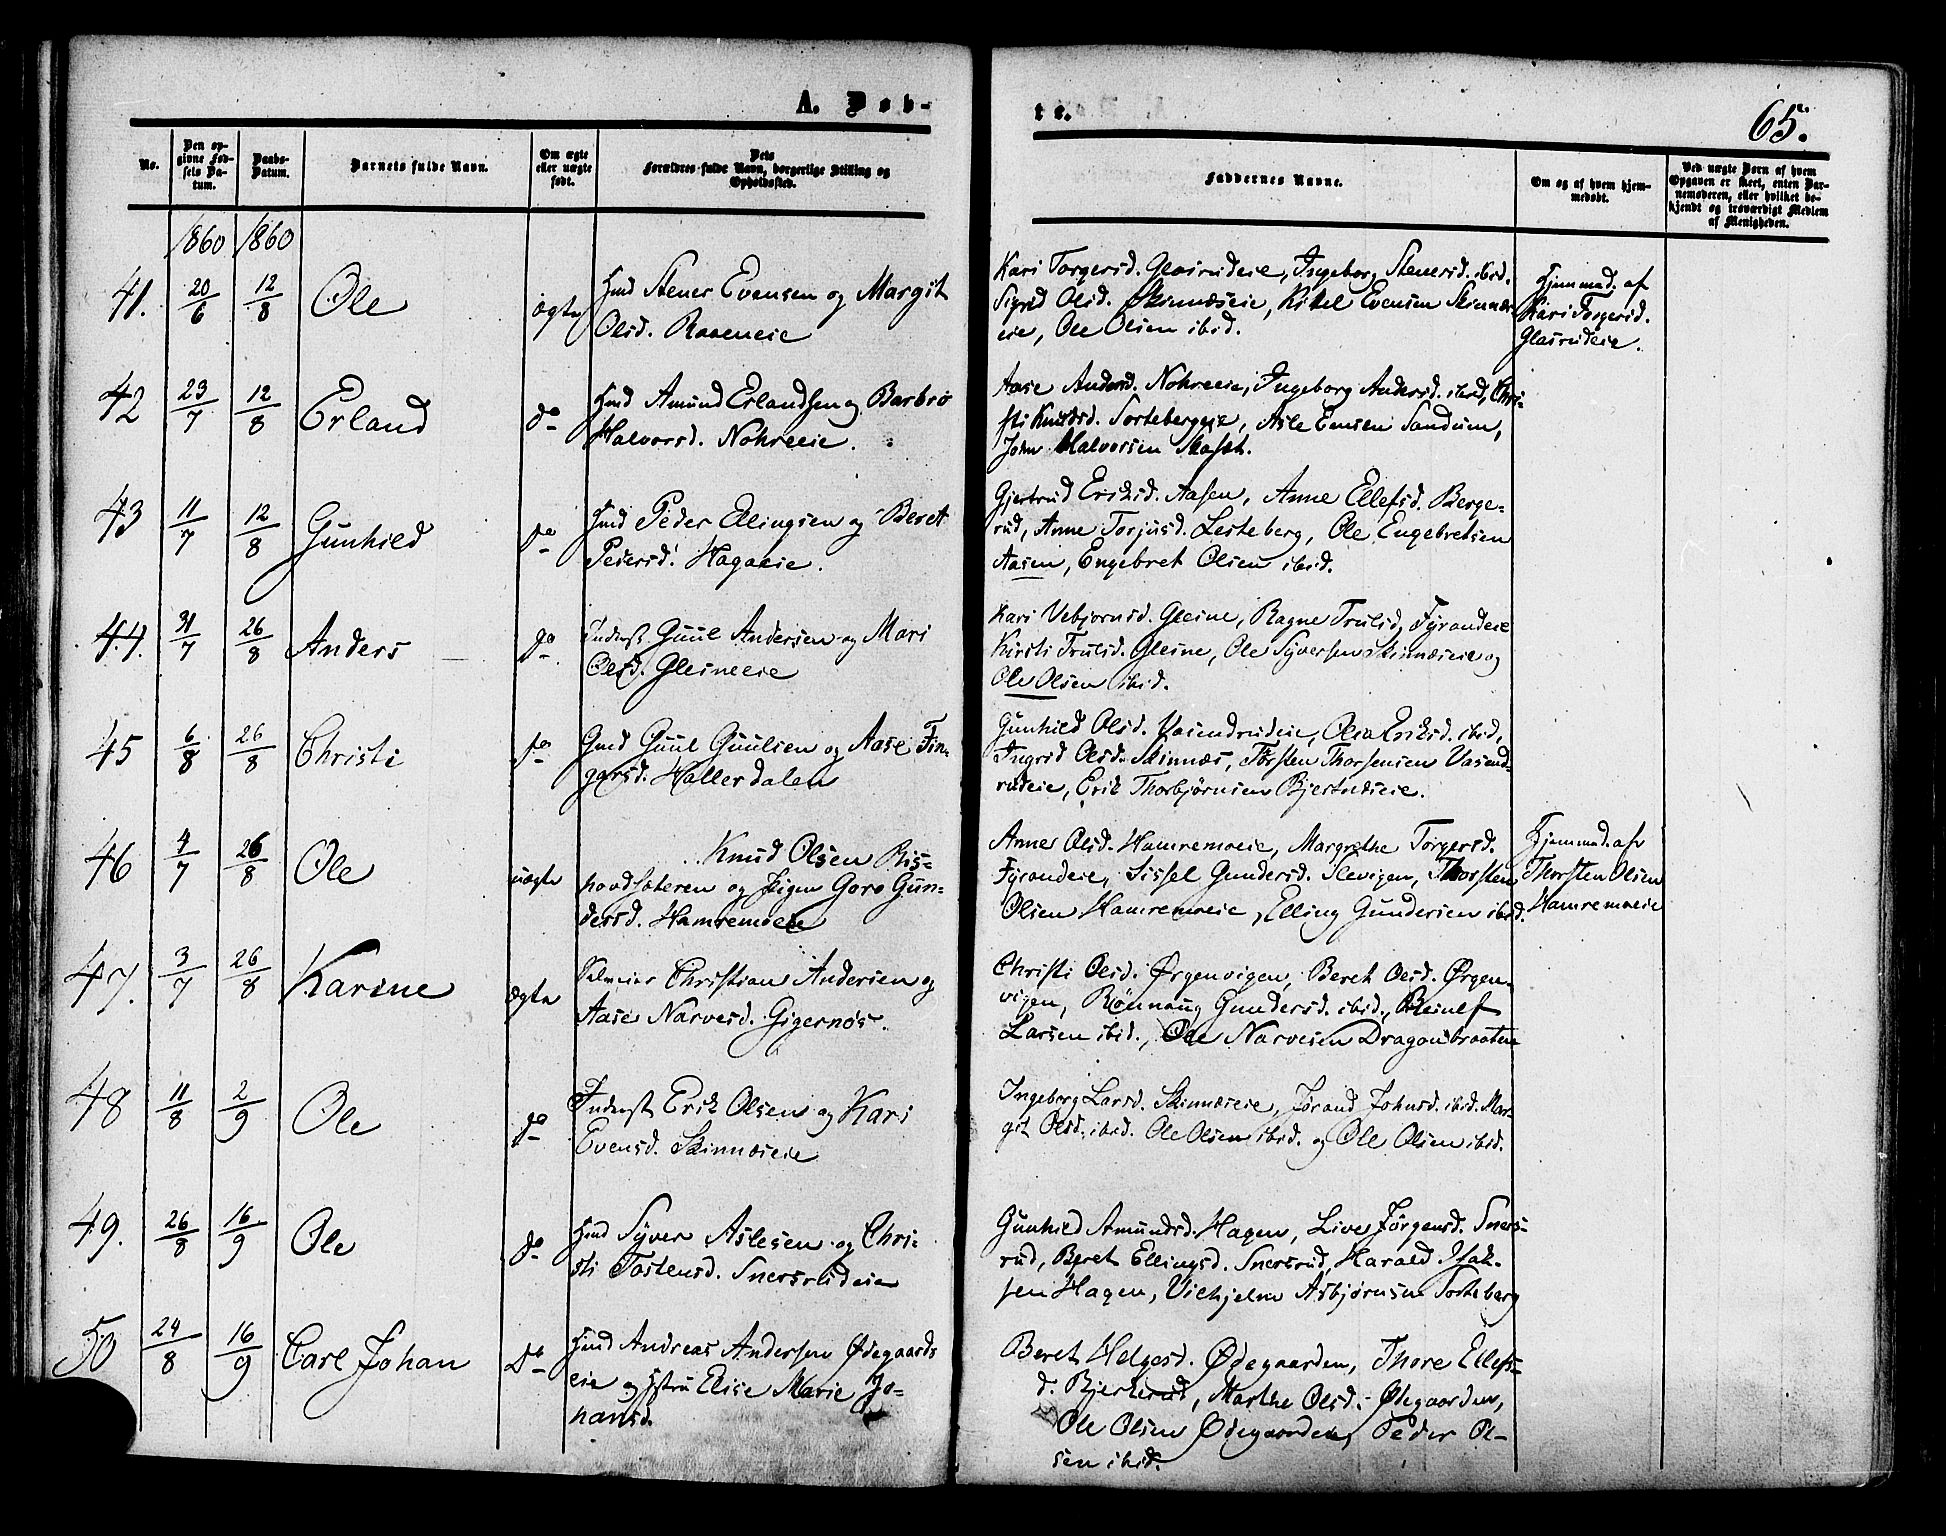 A. Døb-
te.
65.
No.
Den op-
givne Fød-
sels Da-
tum.
Daabs-
Datum.
Barnets fulde Navn.
Om ægte
eller uægte
født.
Dets
Forældres fulde Navn, borgerlige Stilling og
Opholdssted.
Faddernes Navne.
Om og af hvem hjem-
medøbt.
Ved uægte Børn af hvem
Opgaven er skeet, enten Bar-
nemoderen, eller hvilket be-
kjendt og troværdigt Medlem
af Menigheden.
1860 1860
41. 20/6 12/8 Ole ægte
Hmd Stener Evensen og Margit
Olsd. Raaeneie
Kari Torgersd. Glasrudeie, Ingeborg Stenersd. ibid.
Sigrid Olsd. Skinnæseie, Kittel Evensen Skinnæs-
eie, Ole Olsen ibid.
Hjemmed. af
Kari Torgersd.
Glasrudeie.
42 23/7 12/8 Erland do
Hmd Amund Erlandsen og Barbro
Halvorsd. Nohreeie.
Aase Andersd. Nohreeie, Ingeborg Andersd. ibid, Chri-
sti Knudsd. Sortebergeie, Asle Evensen Sandum,
John Halvorsen
43 11/7 12/8 Gunhild do
Hmd Peder Ellingsen og Beret
Pedersd. Hagaeie.
Gjertrud Eriksd. Aasen, Anne Ellefsd. Berge-
rud, Anne Torjusd. Lesteberg, Ole Engebretsen
Aasen, Engebret Olsen ibid.
44. 31/7 26/8 Anders do
Inderst Guul Andersen og Mari
Olsd. Gleineeie
Kari Vebjørnsd. Gleine, Ragne Trulsd. Fyrandeie
Kirsti Trulsd. Gleine, Ole Syversen Skinnæseie og
Ole Olsen ibid.
45 6/8 26/8 Christi do
Gmd Guul Guulsen og Aase Fin-
garsd. Hallerdalen
Gunhild Olsd. Vasendrudeie, Olea Eriksd. ibid,
Ingrid Olsd. Skinnæs, Torsten Thorstensen Vasend-
rudeie, Erik Thorbjørnsen Bjertnæseie.
46 4/7 26/8 Ole uægte
Knud Olsen Ris-
hovdsæteren og Pigen Goro Gun-
dersd. Hamremoeie
Anne Olsd. Hamremoeie, Margrethe Torgersd.
Fyrandeie, Sissel Gundersd. Slevigen, Thorsten
Olsen Hamremoeie, Elling Gundersen ibid.
Hjemmed. af
Thorsten Olsen
Hamremoeie
47. 3/7 26/8 Karine ægte
Christian Andersen og
Aase Narvesd. Gigernøs.
Christi Olsd. Ørgenvigen, Beret Olsd. Ørgen-
vigen, Rønnaug Gundersd. ibid., Reiulf
Larsen ibid., Ole Narvesen Dragonbraaten
48 11/8 2/9 Ole do
Inderst Erik Olsen og Kari
Evensd. Skinnæseie
Ingeborg Larsd. Skinnæseie, Jørand Johnsd. ibid. Mar-
git Olsd. ibid. Ole Olsen ibid. og Ole Olsen ibid.
49. 26/8 16/9 Ole do
Hmd Syver Aslesen og Chri-
sti Tostensd. Snersrudeie
Gunhild Amundsd. Hagen, Live Jørgensd. Sners-
rud, Beret Ellingsd. Snersrud, Harald Isak-
sen Hagen, Vilhjelm Asbjørnsen Sorteberg
50 24/8 16/9 Carl Johan do
Hmd Andreas Andersen Ødegaards
eie og Hstru Elise Marie Jo-
hansd.
Beret Helgesd. Ødegaarden, Thore Ellefs-
d. Bjerkerud, Marthe Olsd. Ødegaarden,
Ole Olsen Ødegaarden, Peder Ol-
sen ibid.